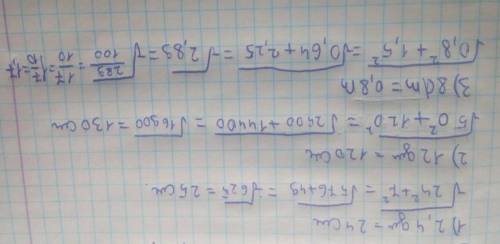 1) 2,4 дм = 24 см
√24²+7² = √576+49 = √625 = 25 см
2) 12 дм = 120 см
√50²+120² = √2500+14400 = √16900 = 130 см
3) 8 дм = 0,8 м
√0,8²+1,5² = √0,64+2,25 = √2,89 = √289/100 = 17/10 = 1 7/10 = 1,7